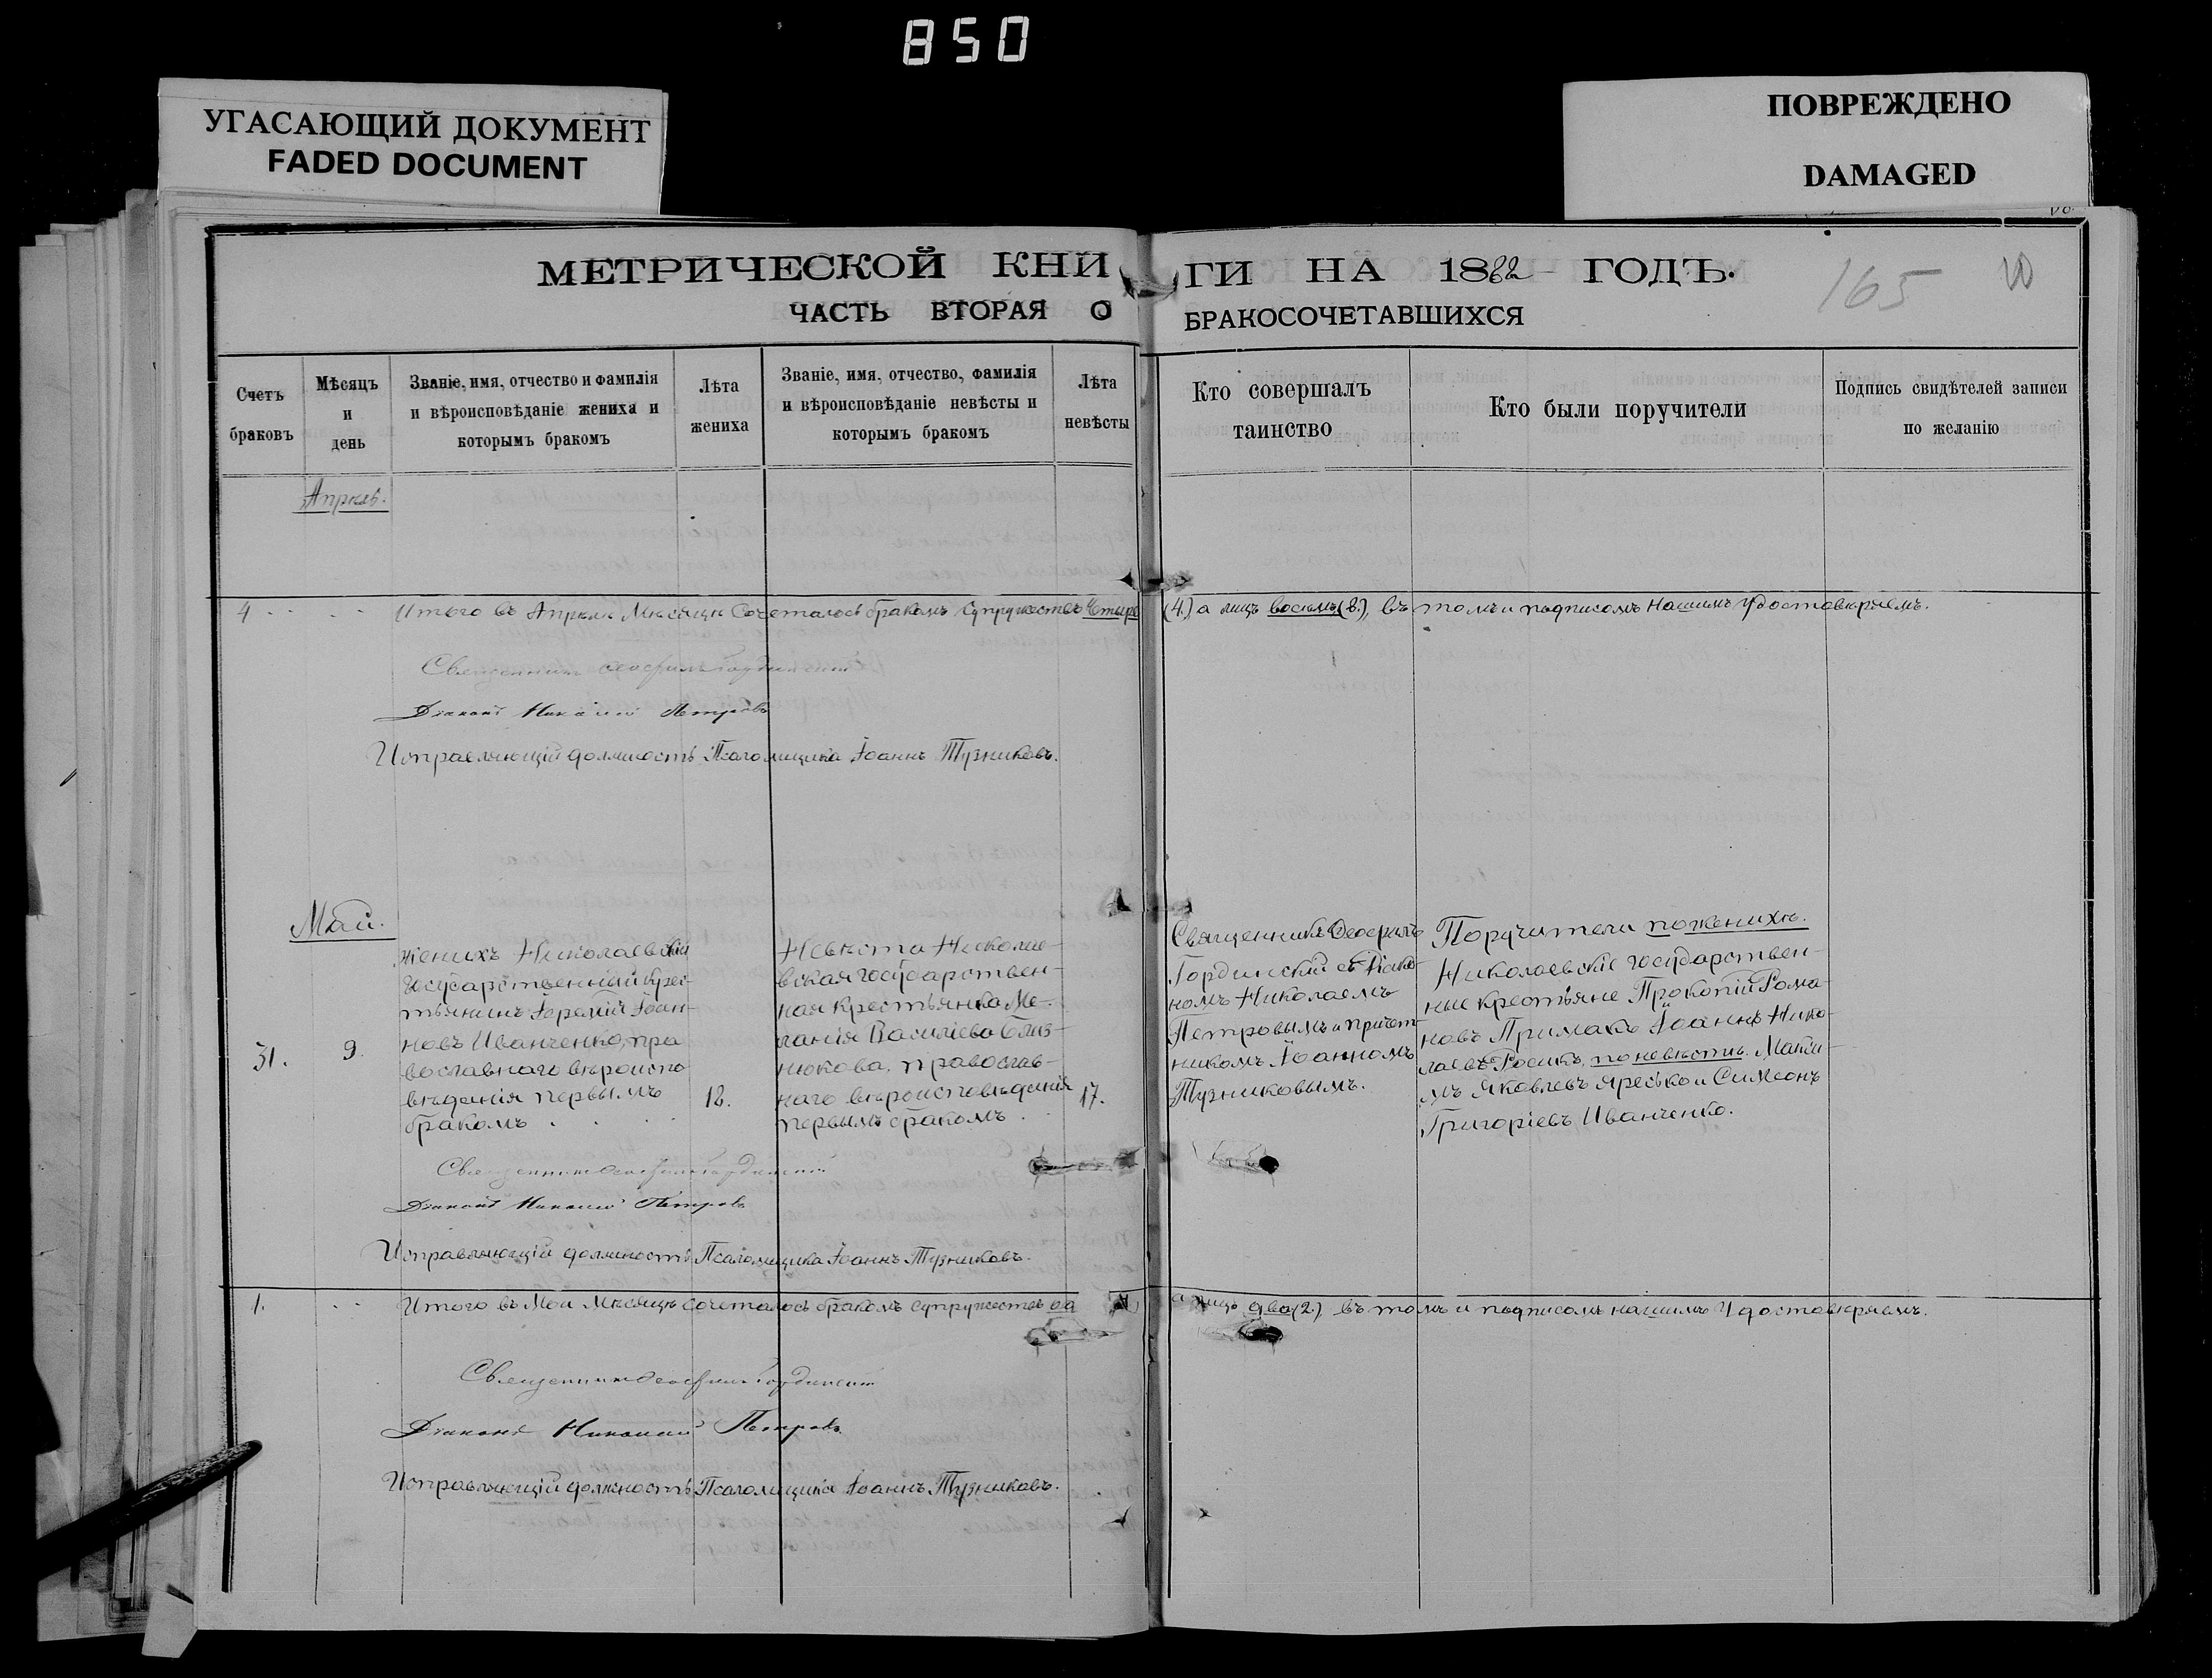 850
УГАСАЮЩИЙ ДОКУМЕНТ
FADED DOCUMENT
ПОВРЕЖДЕНО
DAMAGED
МЕТРИЧЕСКОЙ КНИГИ НА 1882 ГОДЪ.
165
ЧАСТЬ ВТОРАЯ О БРАКОСОЧЕТАВШИХСЯ
Счетъ
браковъ
Мѣсяцъ
и
день
Званіе, имя, отчество и фамилія
и вѣроисповѣданіе жениха и
которымъ бракомъ
Лѣта
жениха
Званіе, имя, отчество, фамилія
и вѣроисповѣданіе невѣсты и
которымъ бракомъ
Лѣта
невѣсты
Кто совершалъ
таинство
Кто были поручители
Подпись свидѣтелей записи
по желанію
Апрѣль.
4 Итого въ Апрѣлѣ Мѣсяцѣ Сочеталось бракомъ Супружествъ Четыре (4.) а лицъ восемь (8.), въ томъ и подписомъ нашимъ Удостовѣряемъ.
Священникъ Ѳеофилъ Гординскій
Діаконъ Николай Петровъ
Исправляющій должность Псаломщика Іоаннъ Тузниковъ.
Май.
31.
9.
Женихъ Николаевскій
Государственный Крес-
тьянинъ Іеремій Іоан-
новъ Иванченко, пра
вославнаго вѣроиспо
вѣданія первымъ
бракомъ
18.
Невѣста Николае-
вская Государствен-
ная Крестьянка Ме-
ланія Васильева Близ-
нюкова, православ-
наго вѣроисповѣданія
первымъ бракомъ
17.
Священникъ Ѳеофилъ
Гординскій съ Діако-
номъ Николаемъ
Петровымъ и причет-
никомъ Іоанномъ
Тузниковымъ.
Поручители по женихѣ.
Николаевскіе Государствен-
ные Крестьяне Прокопій Рома-
новъ Примакъ Іоаннъ Нико-
лаевъ по невѣстѣ. Макси-
мъ Яковлевъ Яресько и Симеонъ
Григоріевъ Иванченко.
Священникъ Ѳеофилъ Гординскій
Діаконъ Николай Петровъ
Исправляющій должность Псаломщика Іоаннъ Тузниковъ.
1. Итого въ Маи Мѣсяцѣ сочеталось бракомъ супружествъ а лицъ два (2.) въ томъ и подписомъ нашимъ Удостовѣряемъ.
Священникъ Ѳеофилъ Гординскій
Діаконъ Николай Петровъ
Исправляющій должность Псаломщика Іоаннъ Тузниковъ.